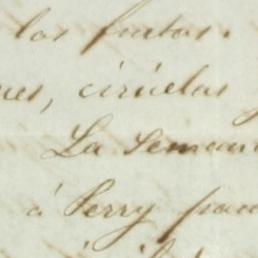 los frutos.
ciruelas
La Seman
á Perry para